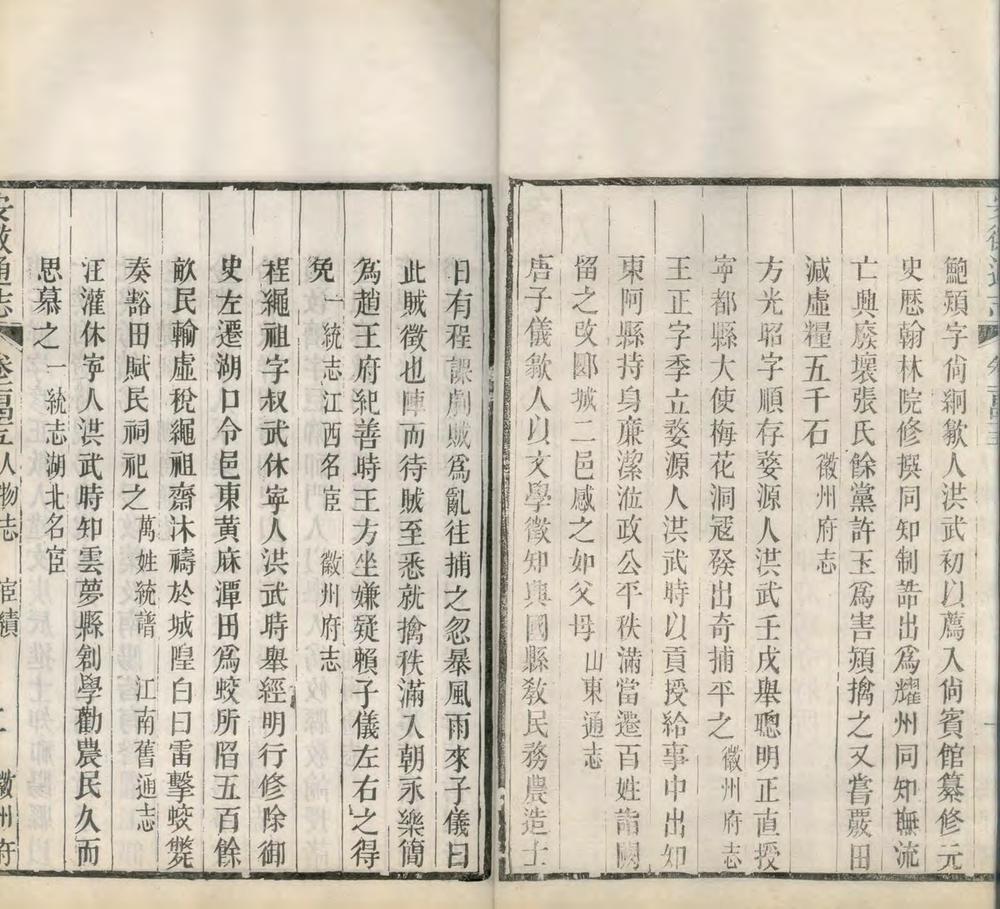 鮑熲字尙絅歙人洪武初以薦入尙賓館纂修元
史歷翰林院修撰同知制誥出爲耀州同知撫流
亡興廢壞張氏餘黨許玉爲害熲擒之又嘗覈田
減虛糧五千石徽州府志
方光昭字順存婺源人洪武壬戌舉聰明正直授
寧都縣大使梅花洞冦發出奇捕平之徽州府志
王正字季立婺源人洪武時以貢授給事中出知
東阿縣持身廉潔涖政公平秩滿當遷百姓詣闕
留之改郾城二邑感之如父母山東通志
唐子儀歙人以文學徵知興國縣敎民務農造士
日有程課劇賊爲亂往捕之忽暴風雨來子儀曰
此賊徵也陣而待賊至悉就擒秩滿入朝永樂簡
爲趙王府紀善時王方坐嫌疑賴子儀左右之得
免一統志江西名宦 徽州府志
程繩祖字叔武休寧人洪武時舉經明行修除御
史左遷湖口令邑東黃麻潭田爲蛟所陷五百餘
畝民輸虛稅繩祖齋沐禱於城隍白日雷擊蛟斃
奏豁田賦民祠祀之萬姓統譜 江南舊通志
汪灌休寧人洪武時知雲夢縣創學勸農民久而
思慕之一統志湖北名宦
安徽通志 人物志 宦績 二 徽州府